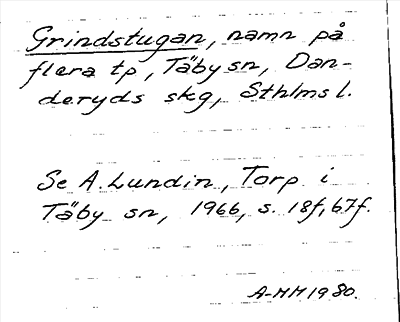 Grindstugan, namn på
flera tp, Täby sn, Dan-
deryds skg, Sthlms l.
Se A. Lundin, Torp i
Täby sn, 1966, s. 18f, 67f.
A-MM 1980.